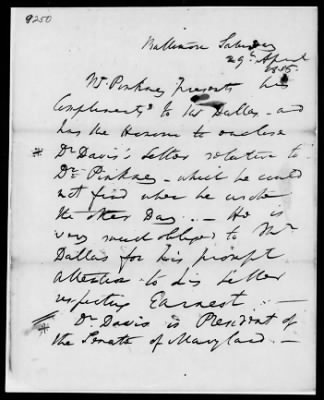 9250
Baltimore Saturday
29th April
1815.
Mr Pinkney Presents his
Compliments to Mr Dallas - and
has the Honour to enclose
* Dr Davis's Letter relative to
Dr Pinkney - which he could
not find when he wrote
the other Day. - He is
very much obliged to Mr
Dallas for his prompt
attention to his Letter
respecting Earnest. -
* Dr Davis is President of
the Senate of Maryland. -